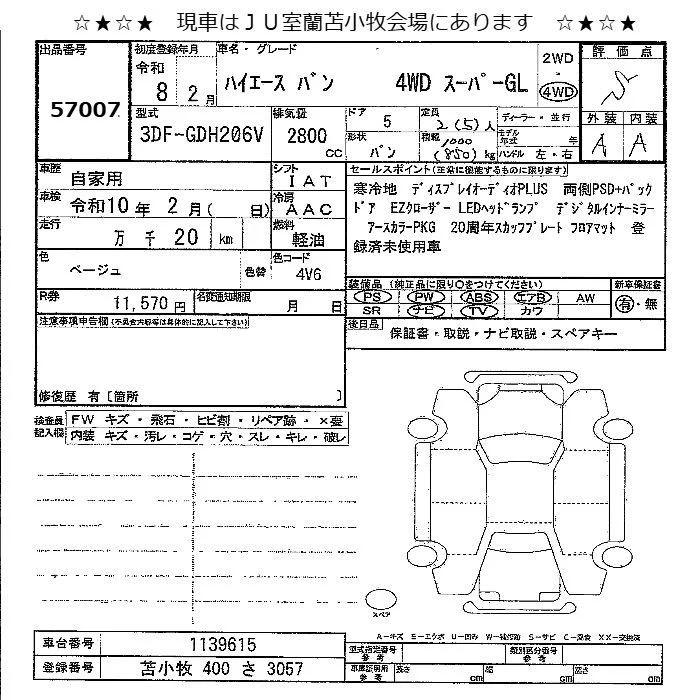 ☆★☆★ 現車はＪＵ室蘭苫小牧会場にあります ☆★☆★
出品番号 57007
初度登録年月 令和 8 2 月
車名・グレード
ハイエース バン 4WD スーパーGL
2WD
4WD
評価点 S
外装 内装
A A
型式
3DF-GDH206V
排気量
2800 CC
ドア 5
形状 バン
定員 2(5)人
積載 1000 (850) kg
ディーラー・並行
モデル年式 年
ハンドル 左・右
車歴 自家用
シフト IAT
車検 令和10年 2月( 日)
冷房 AAC
走行 万 千 20 km
燃料 軽油
色 ベージュ 色替
色コード 4V6
R券 11,570 円
名変通知期限 月 日
セールスポイント(正常に機能するものに限ります)
寒冷地 ディスプレイオーディオPLUS 両側PSD+バック
ドア EZクローザー LEDヘッドランプ デジタルインナーミラー
アースカラーPKG 20周年スカッフプレート フロアマット 登
録済未使用車
装備品(純正品に限り○をつけてください)
PS PW ABS エアB AW
SR ナビ TV カワ
新車保証書
有・無
後日品 保証書・取説・ナビ取説・スペアキー
注意事項申告欄(不具合内容等は具体的に記入して下さい)
修復歴 有〔箇所 〕
検査員記入欄
FW キズ・飛石・ヒビ割・リペア跡・×要
内装 キズ・汚レ・コゲ・穴・スレ・キレ・破レ
スペア
A-キズ E-エクボ U-凹み W-補修跡 S-サビ C-腐食 XX-交換済
車台番号 1139615
登録番号 苫小牧 400 さ 3057
型式指定番号 参考
類別区分番号 参考
車庫証明用 参考 長さ cm 幅 cm 高さ cm